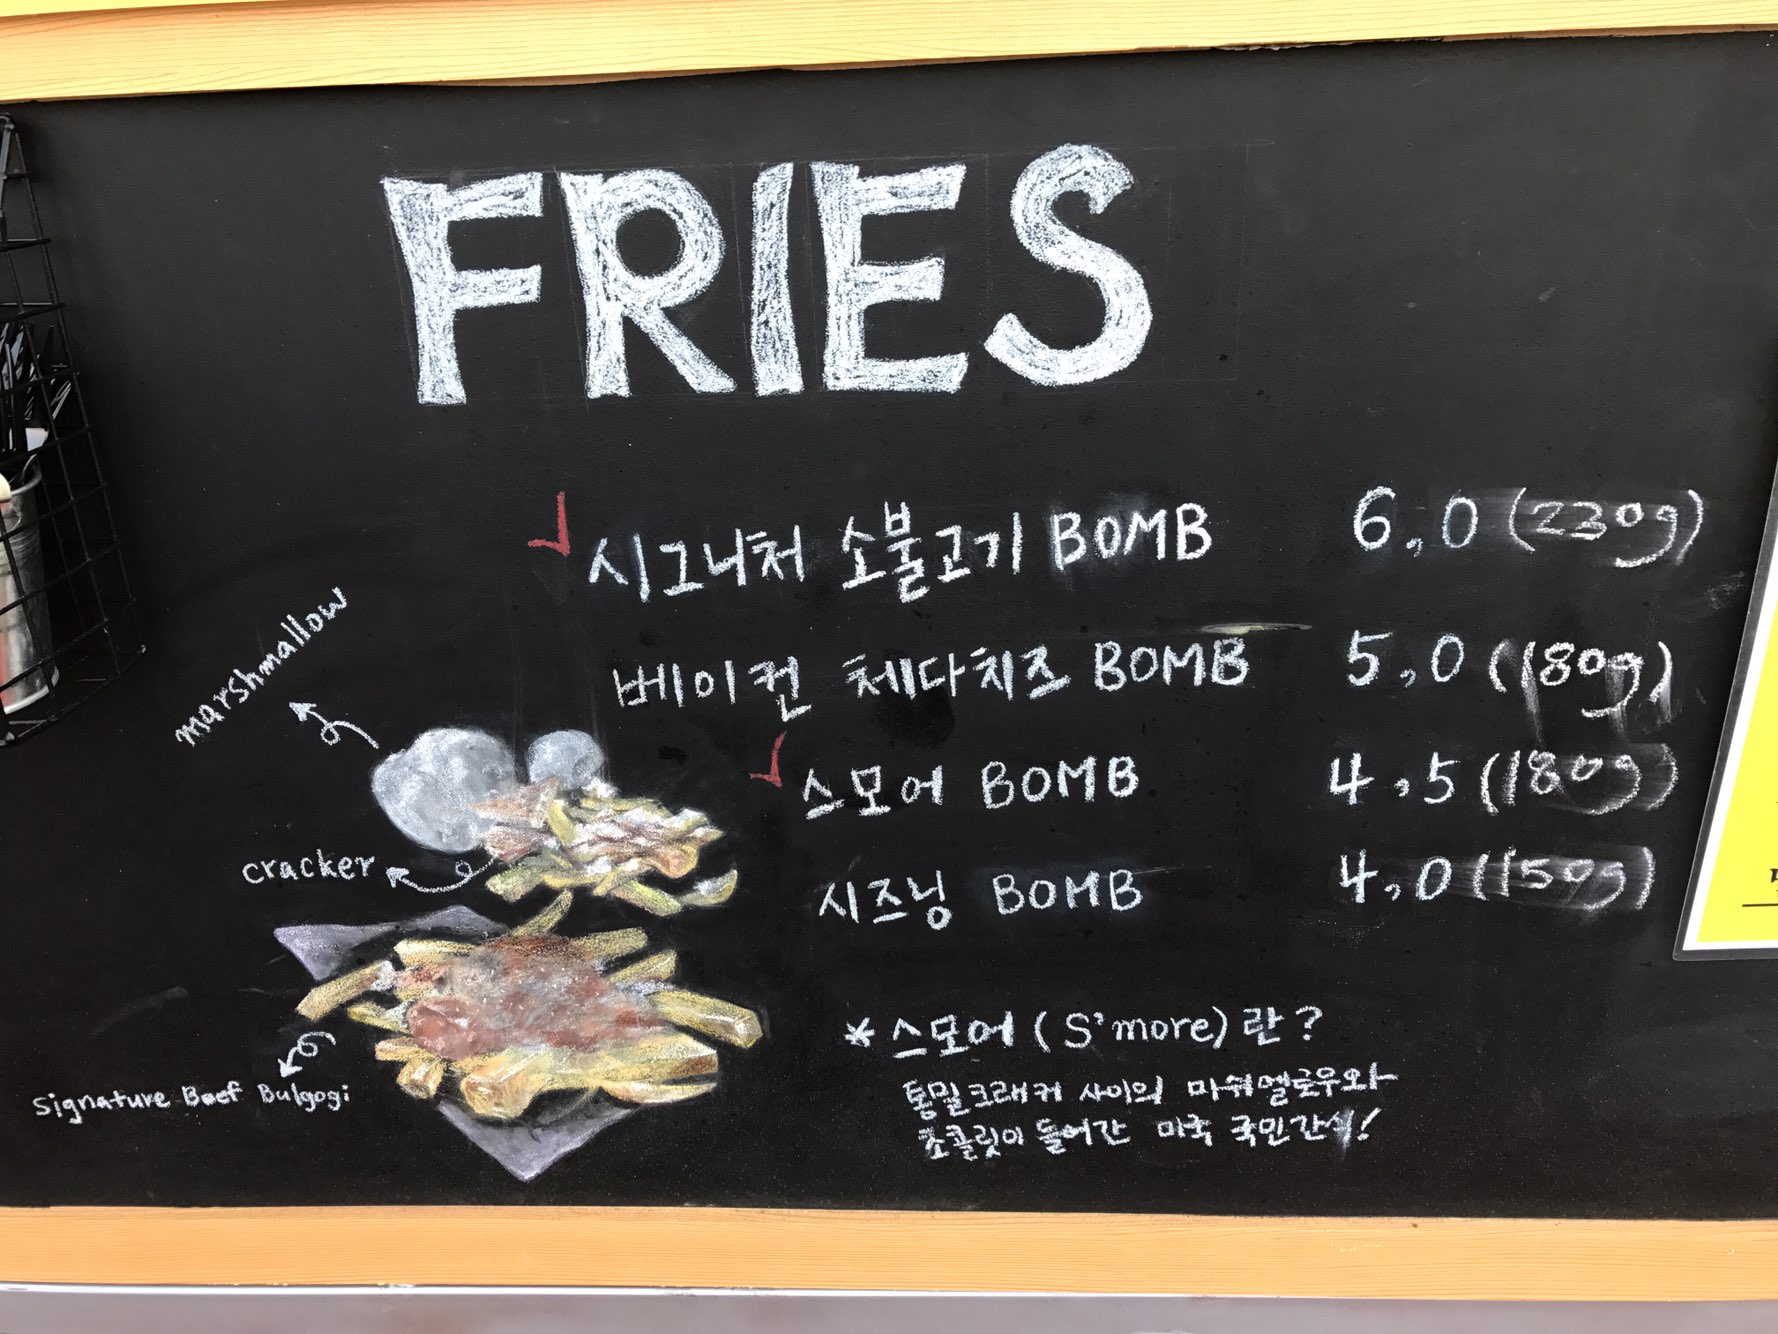 FRIES
시그니처 소불고기 BOMB 6,0 (230g)
베이컨 체다치즈 BOMB 5,0 (180g)
스모어 BOMB 4,5 (180g)
시즈닝 BOMB 4,0 (150g)
marshmallow
cracker
Signature Beef Bulgogi
* 스모어 (S'more) 란?
통밀크래커 사이의 마쉬멜로우와
초콜릿이 들어간 미국 국민간식!